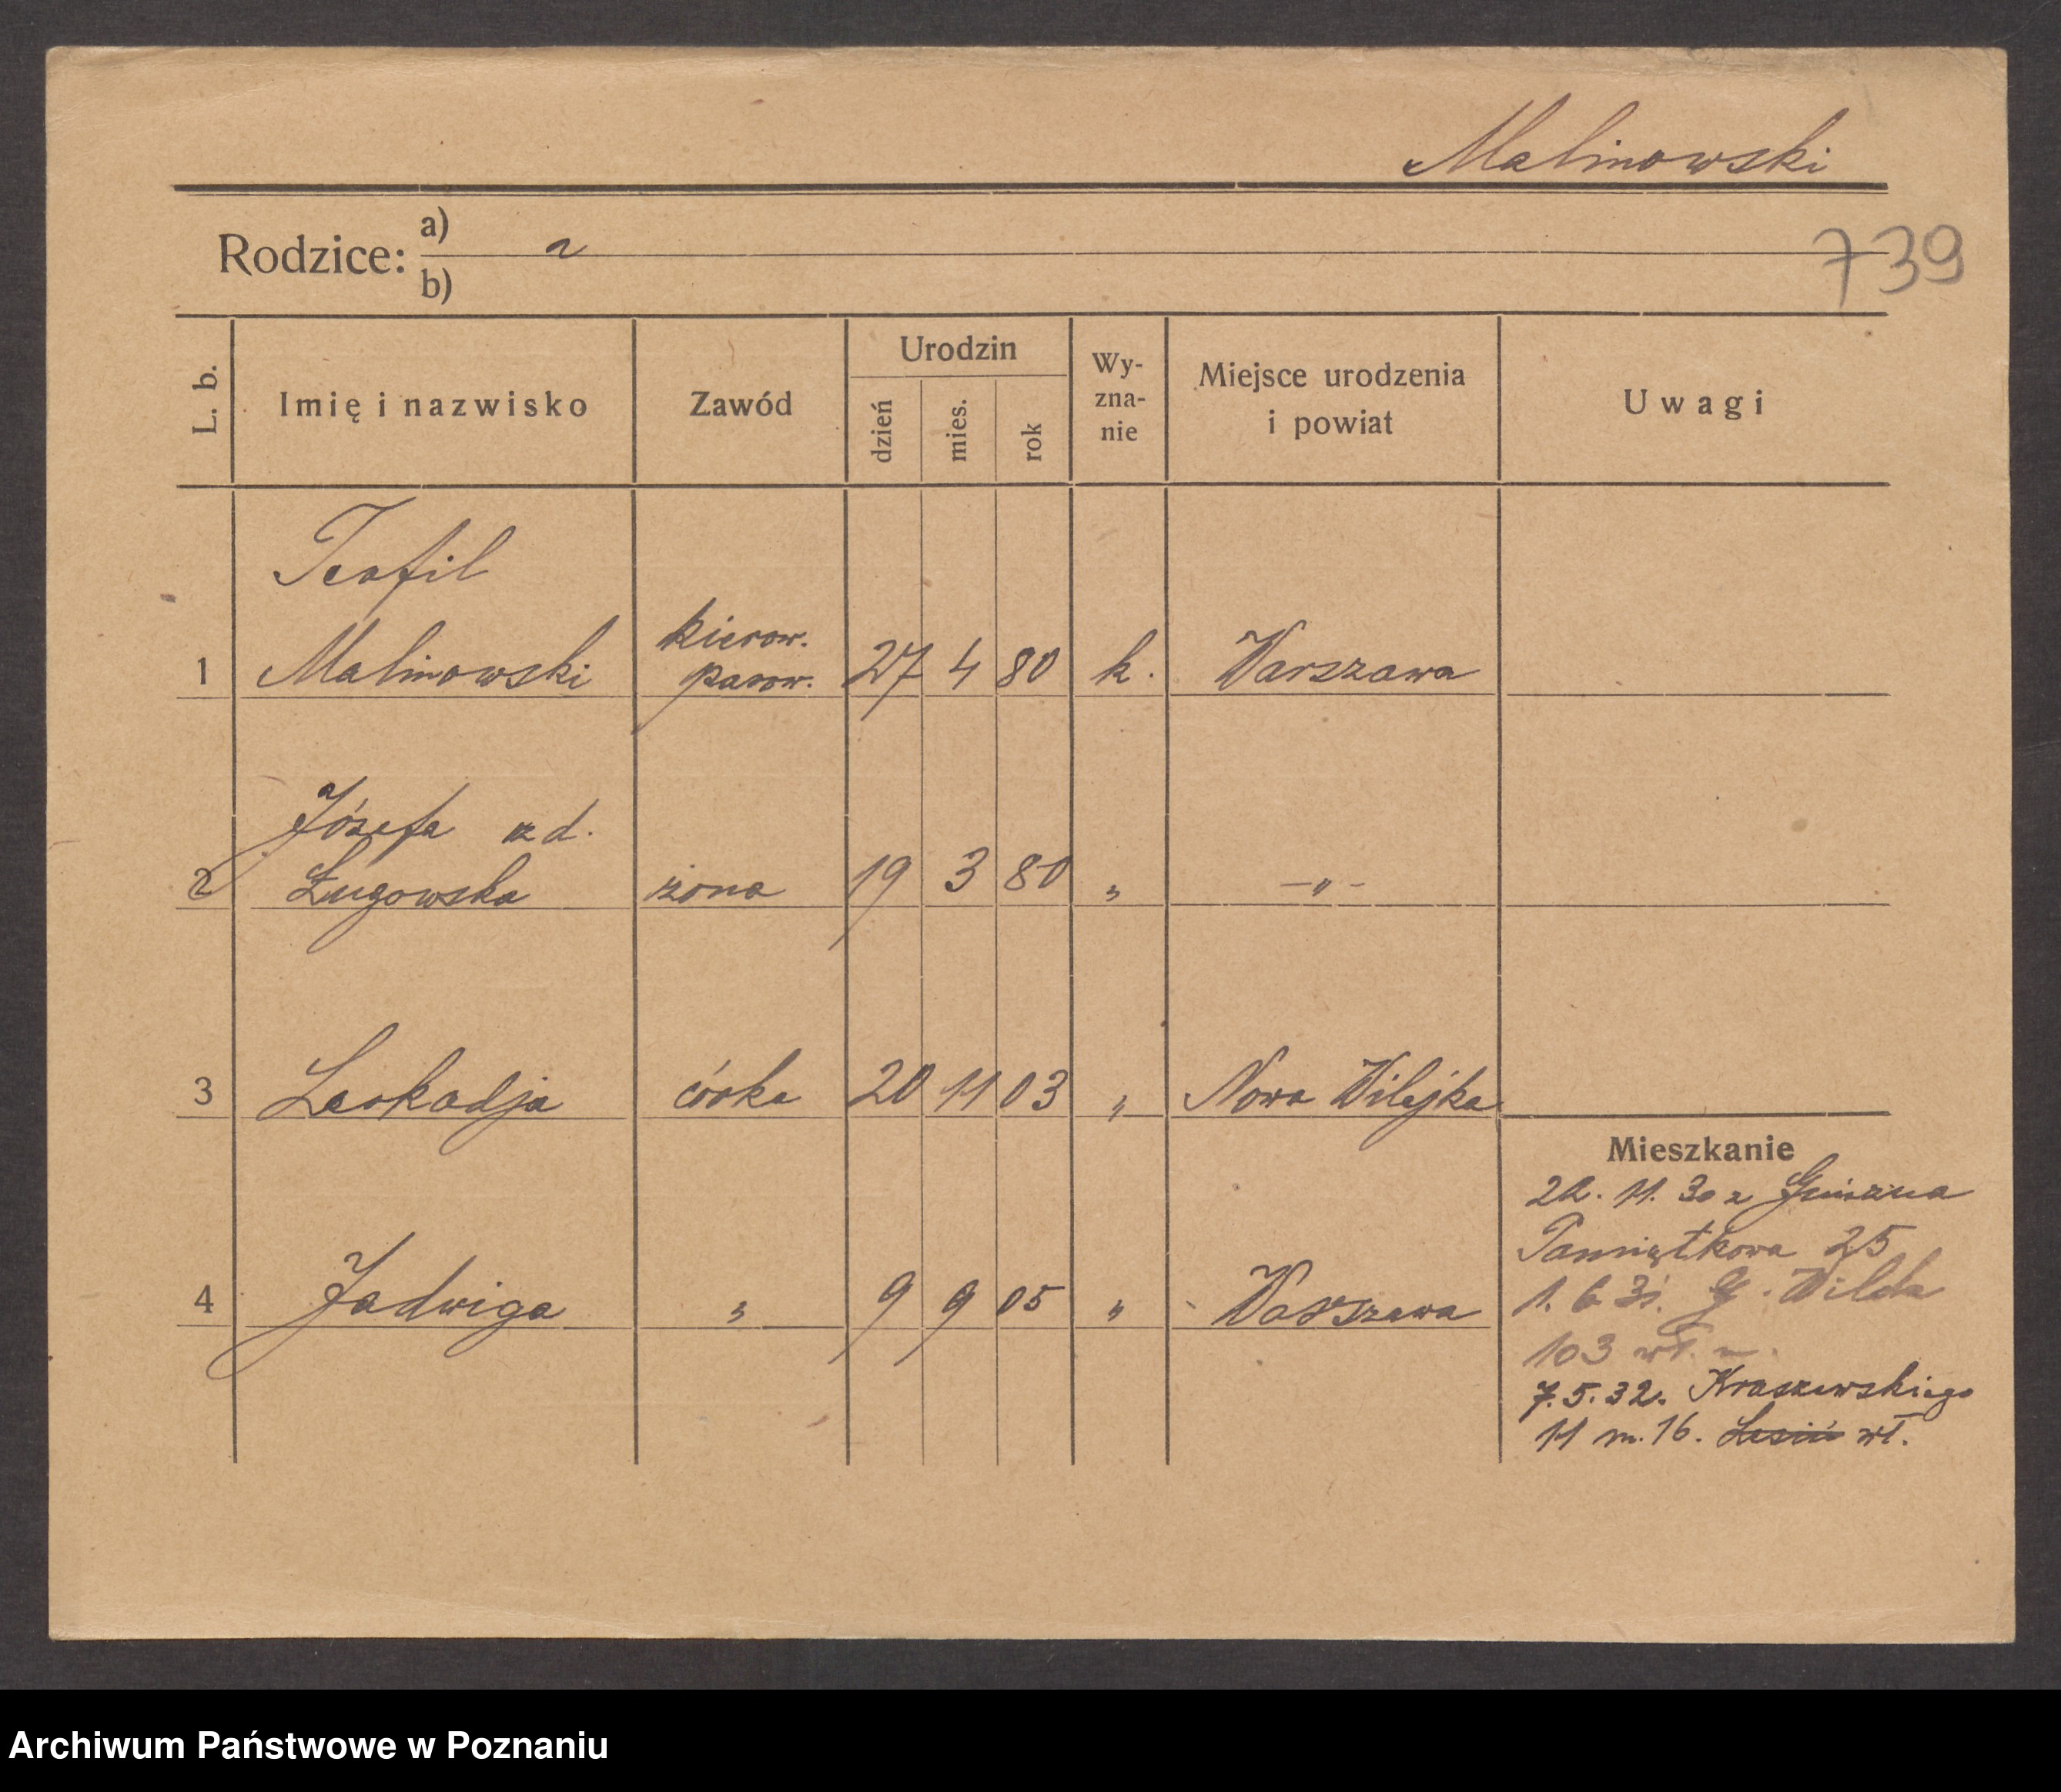 Malinowski
Rodzice: a)
b)
739
L. b.
Imię i nazwisko
Zawód
Urodzin
dzień
mies.
rok
Wy-
zna-
nie
Miejsce urodzenia
i powiat
Uwagi
Teofil
1 Malinowski kierow. parow. 27 4 80 k. Warszawa
Józefa zd.
2 Ługowska żona 19 3 80 „ —„—
3 Leokadja córka 20 11 03 „ Nowa Wilejka
4 Jadwiga „ 9 9 05 „ Warszawa
Mieszkanie
22. 11. 30 z Gniezna
Pamiątkowa 25
1. 6 31. G. Wilda
103 wł.
7.5.32. Kraszewskiego
11 m. 16. wł.
Archiwum Państwowe w Poznaniu